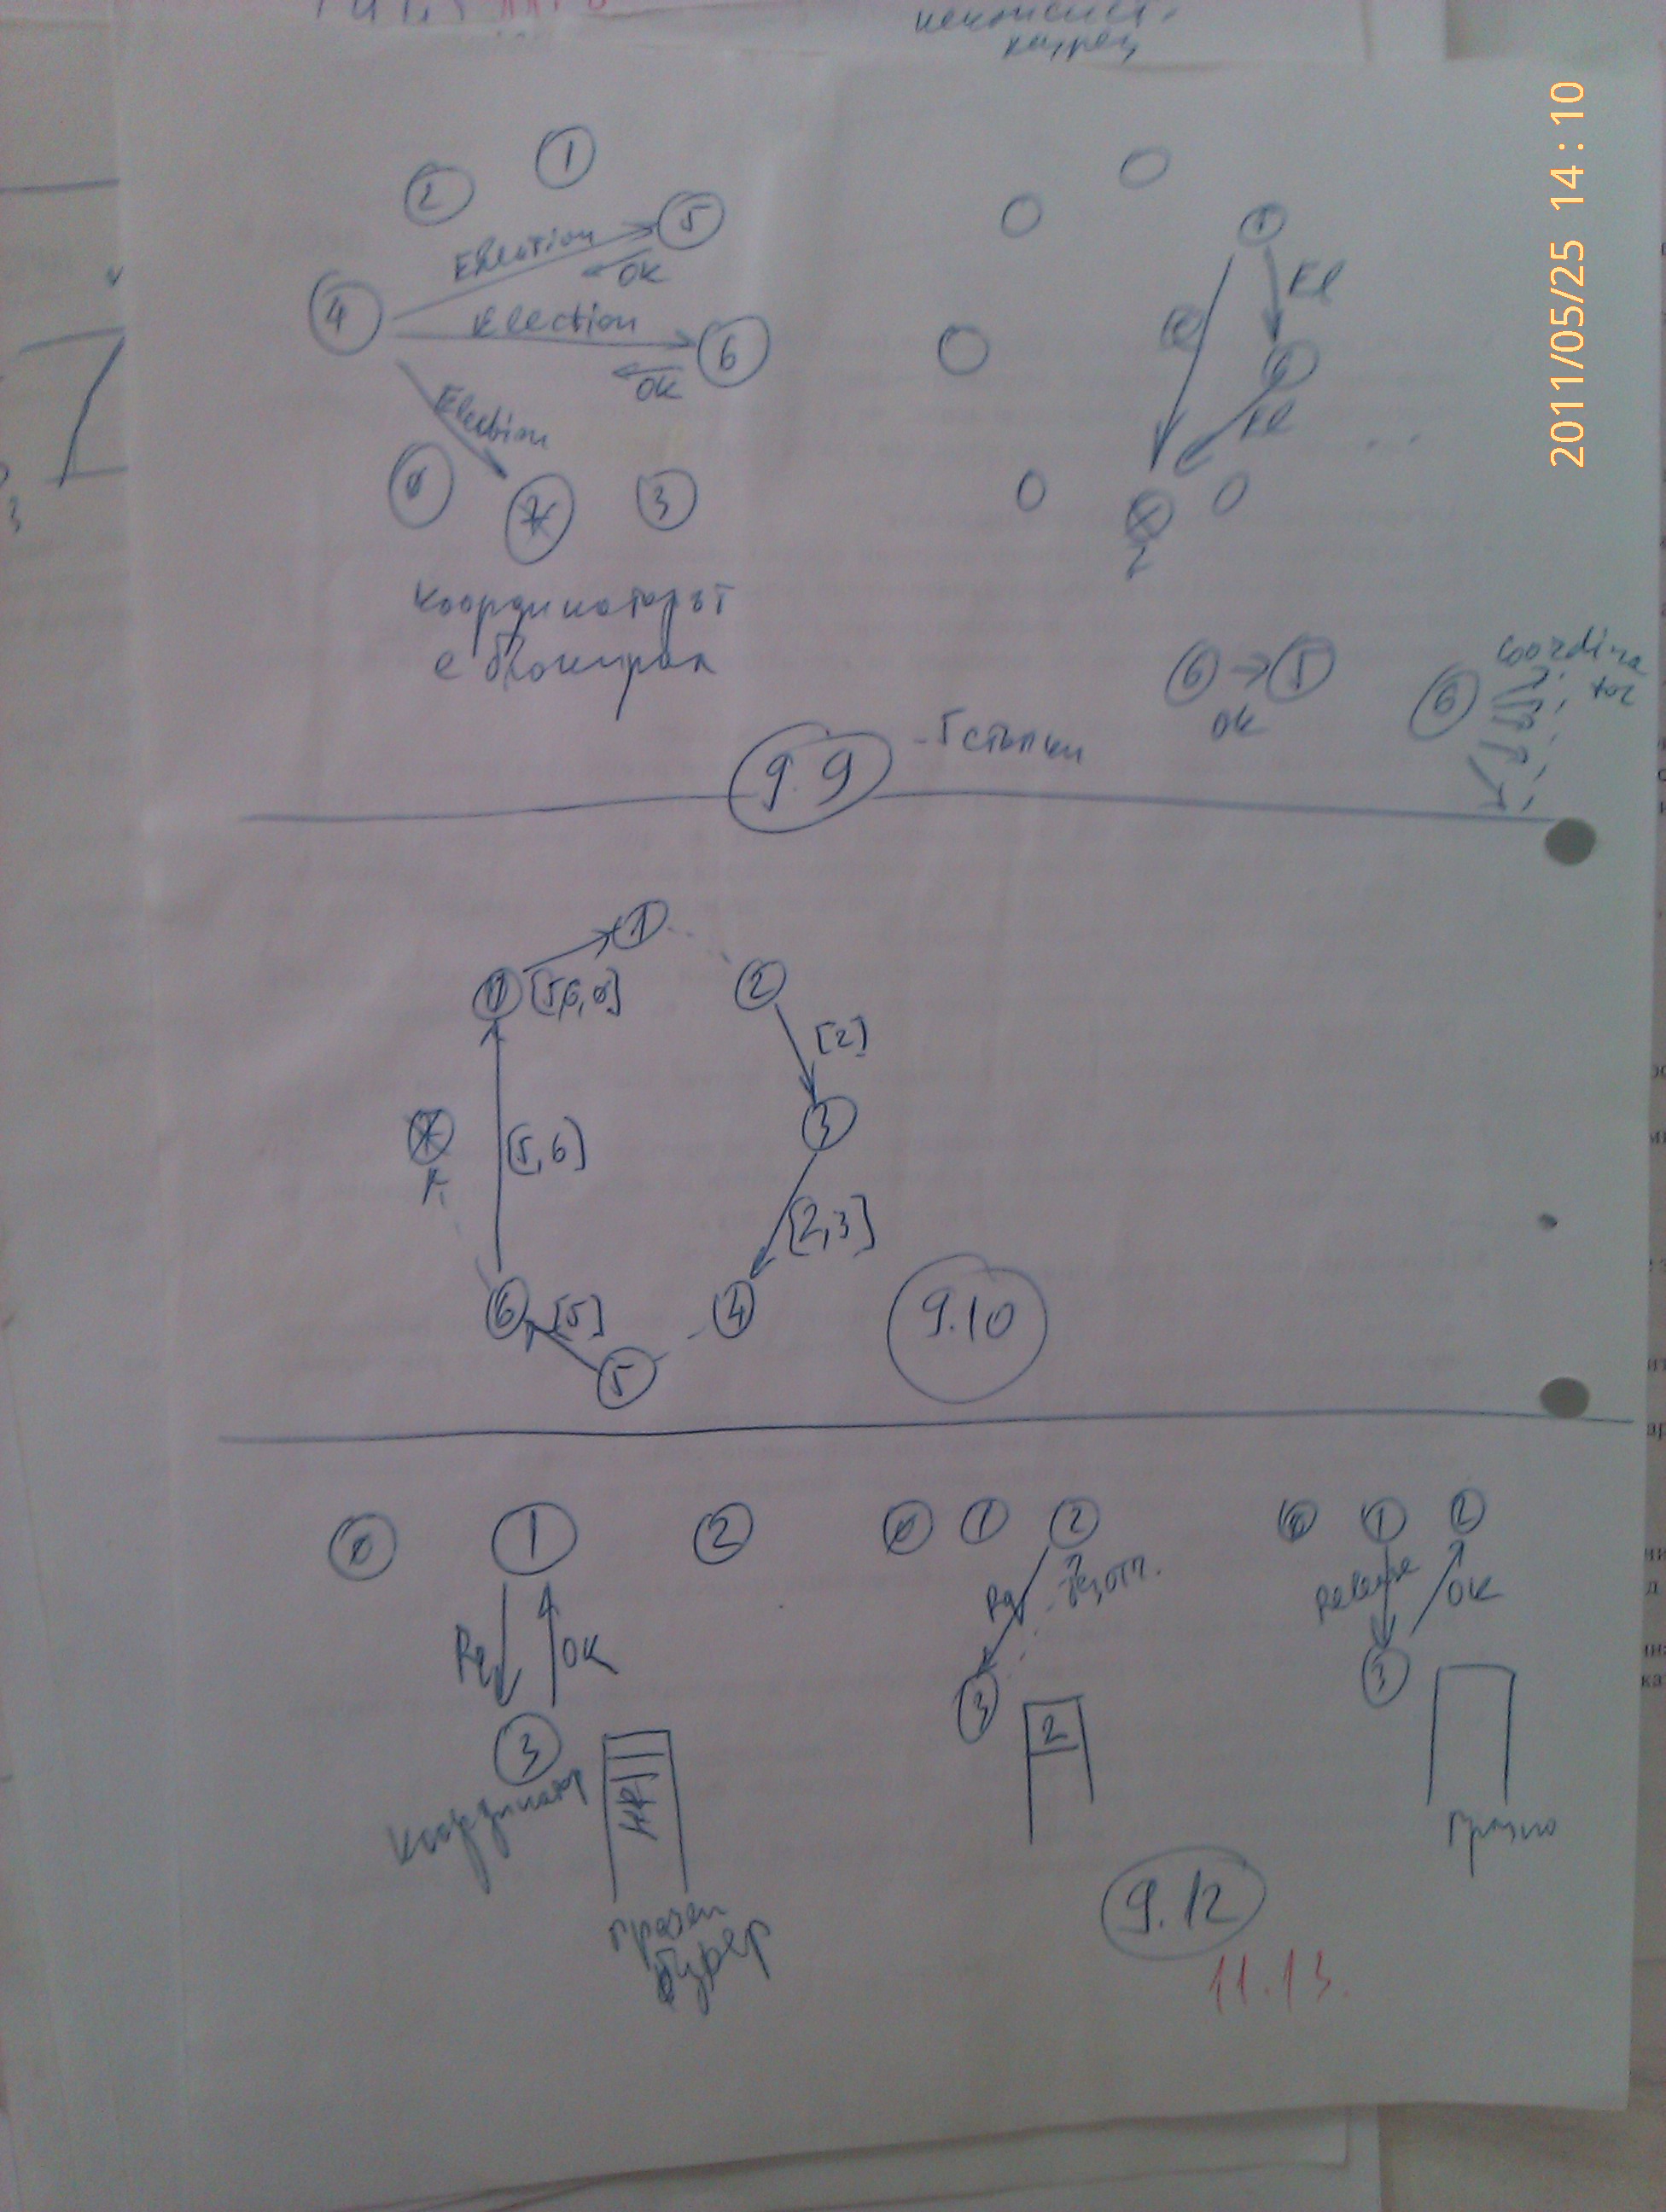 2011/05/25 14:10
2
1
5
Election
OK
4
Election
6
OK
Election
0
7
3
Координаторът
е блокирал
5
El
El
6
El
7
6 → 5
OK
6
Coordina
tor
9.9 - 5 стъпки
1
0
[5,6,0]
2
[2]
3
7
[5,6]
[2,3]
6
[5]
4
5
9.10
0
1
2
Rq
OK
3
Координатор
празен
буфер
0
1
2
Rq
без отг.
3
2
0
1
2
Release
OK
3
празно
9.12
11.13.